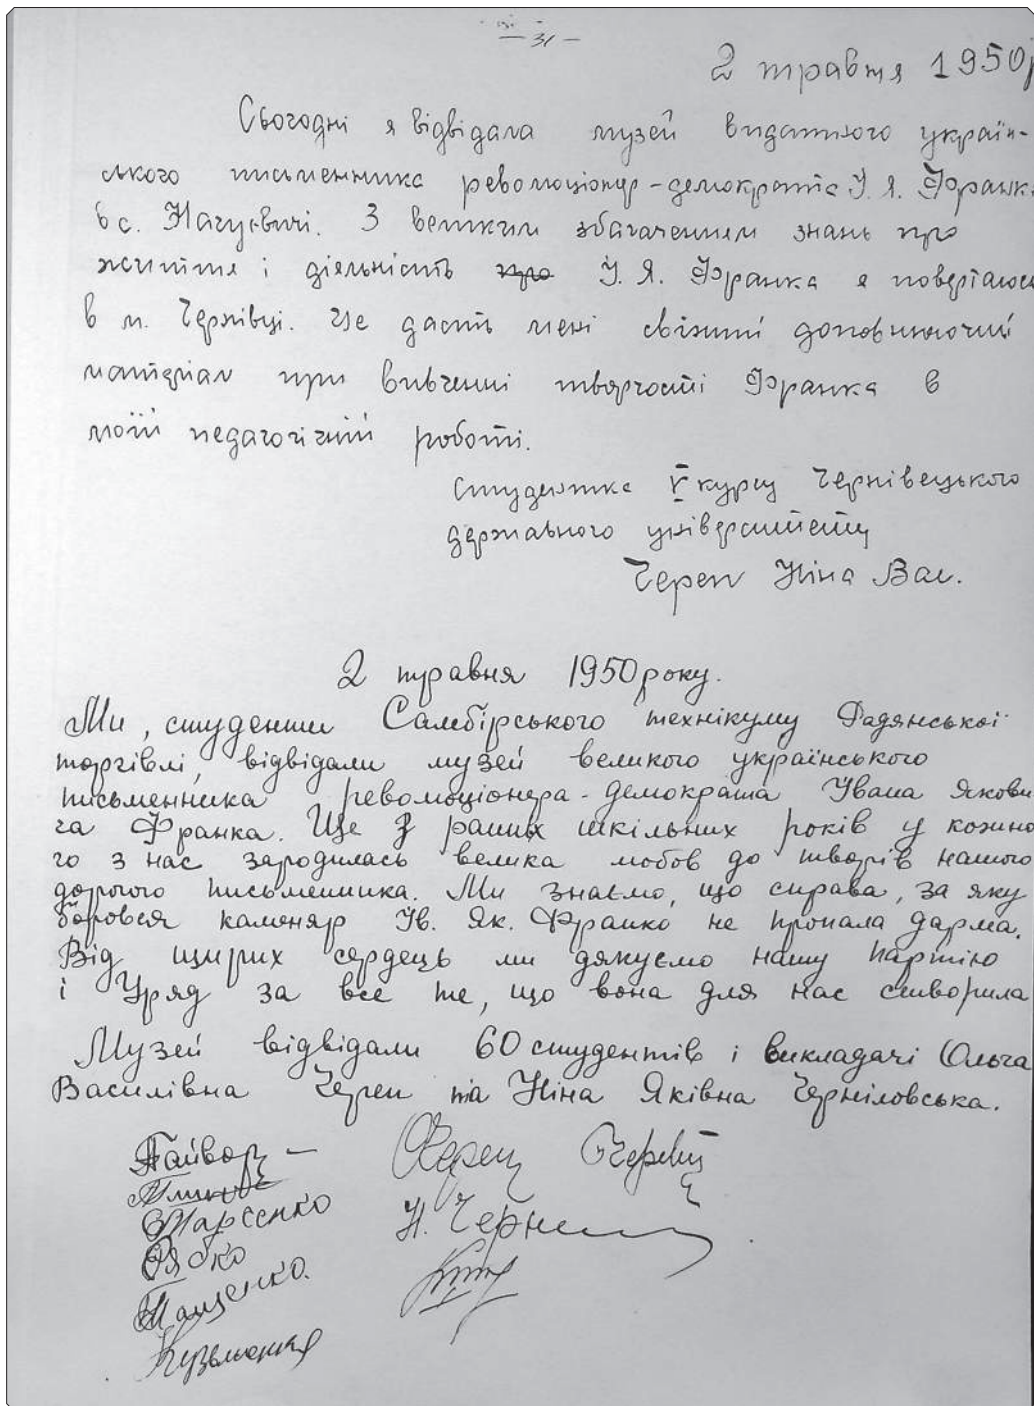 — 31 —
2 травня 1950р
Сьогодні я відвідала музей видатного україн-
ського письменника революціонер-демократа І. Я. Франка
в с. Нагуєвичі. З великим збагаченням знань про
життя і діяльність про І. Я. Франка я повертаюсь
в м. Чернівці. Це дасть мені свіжий доповнюючий
матеріал при вивченні творчості Франка в
моїй педагогічній роботі.
Студентка V курсу Чернівецького
державного університету
Череп Ніна Вас.
2 травня 1950 року.
Ми, студенти Самбірського технікуму Радянської
торгівлі, відвідали музей великого українського
письменника революціонера-демократа Івана Якови
ча Франка. Ще з ранніх шкільних років у кожно
го з нас зародилась велика любов до творів нашого
дорогого письменника. Ми знаємо, що справа, за яку
боровся каменяр Ів. Як. Франко не пропала дарма.
Від щирих сердець ми дякуємо нашу партію
і Уряд за все те, що вона для нас створила
Музей відвідали 60 студентів і викладачі Ольга
Василівна Череп та Ніна Яківна Черніловська.
Гайвор —
Тарсенко
Рябко
Пащенко.
Н. Черни